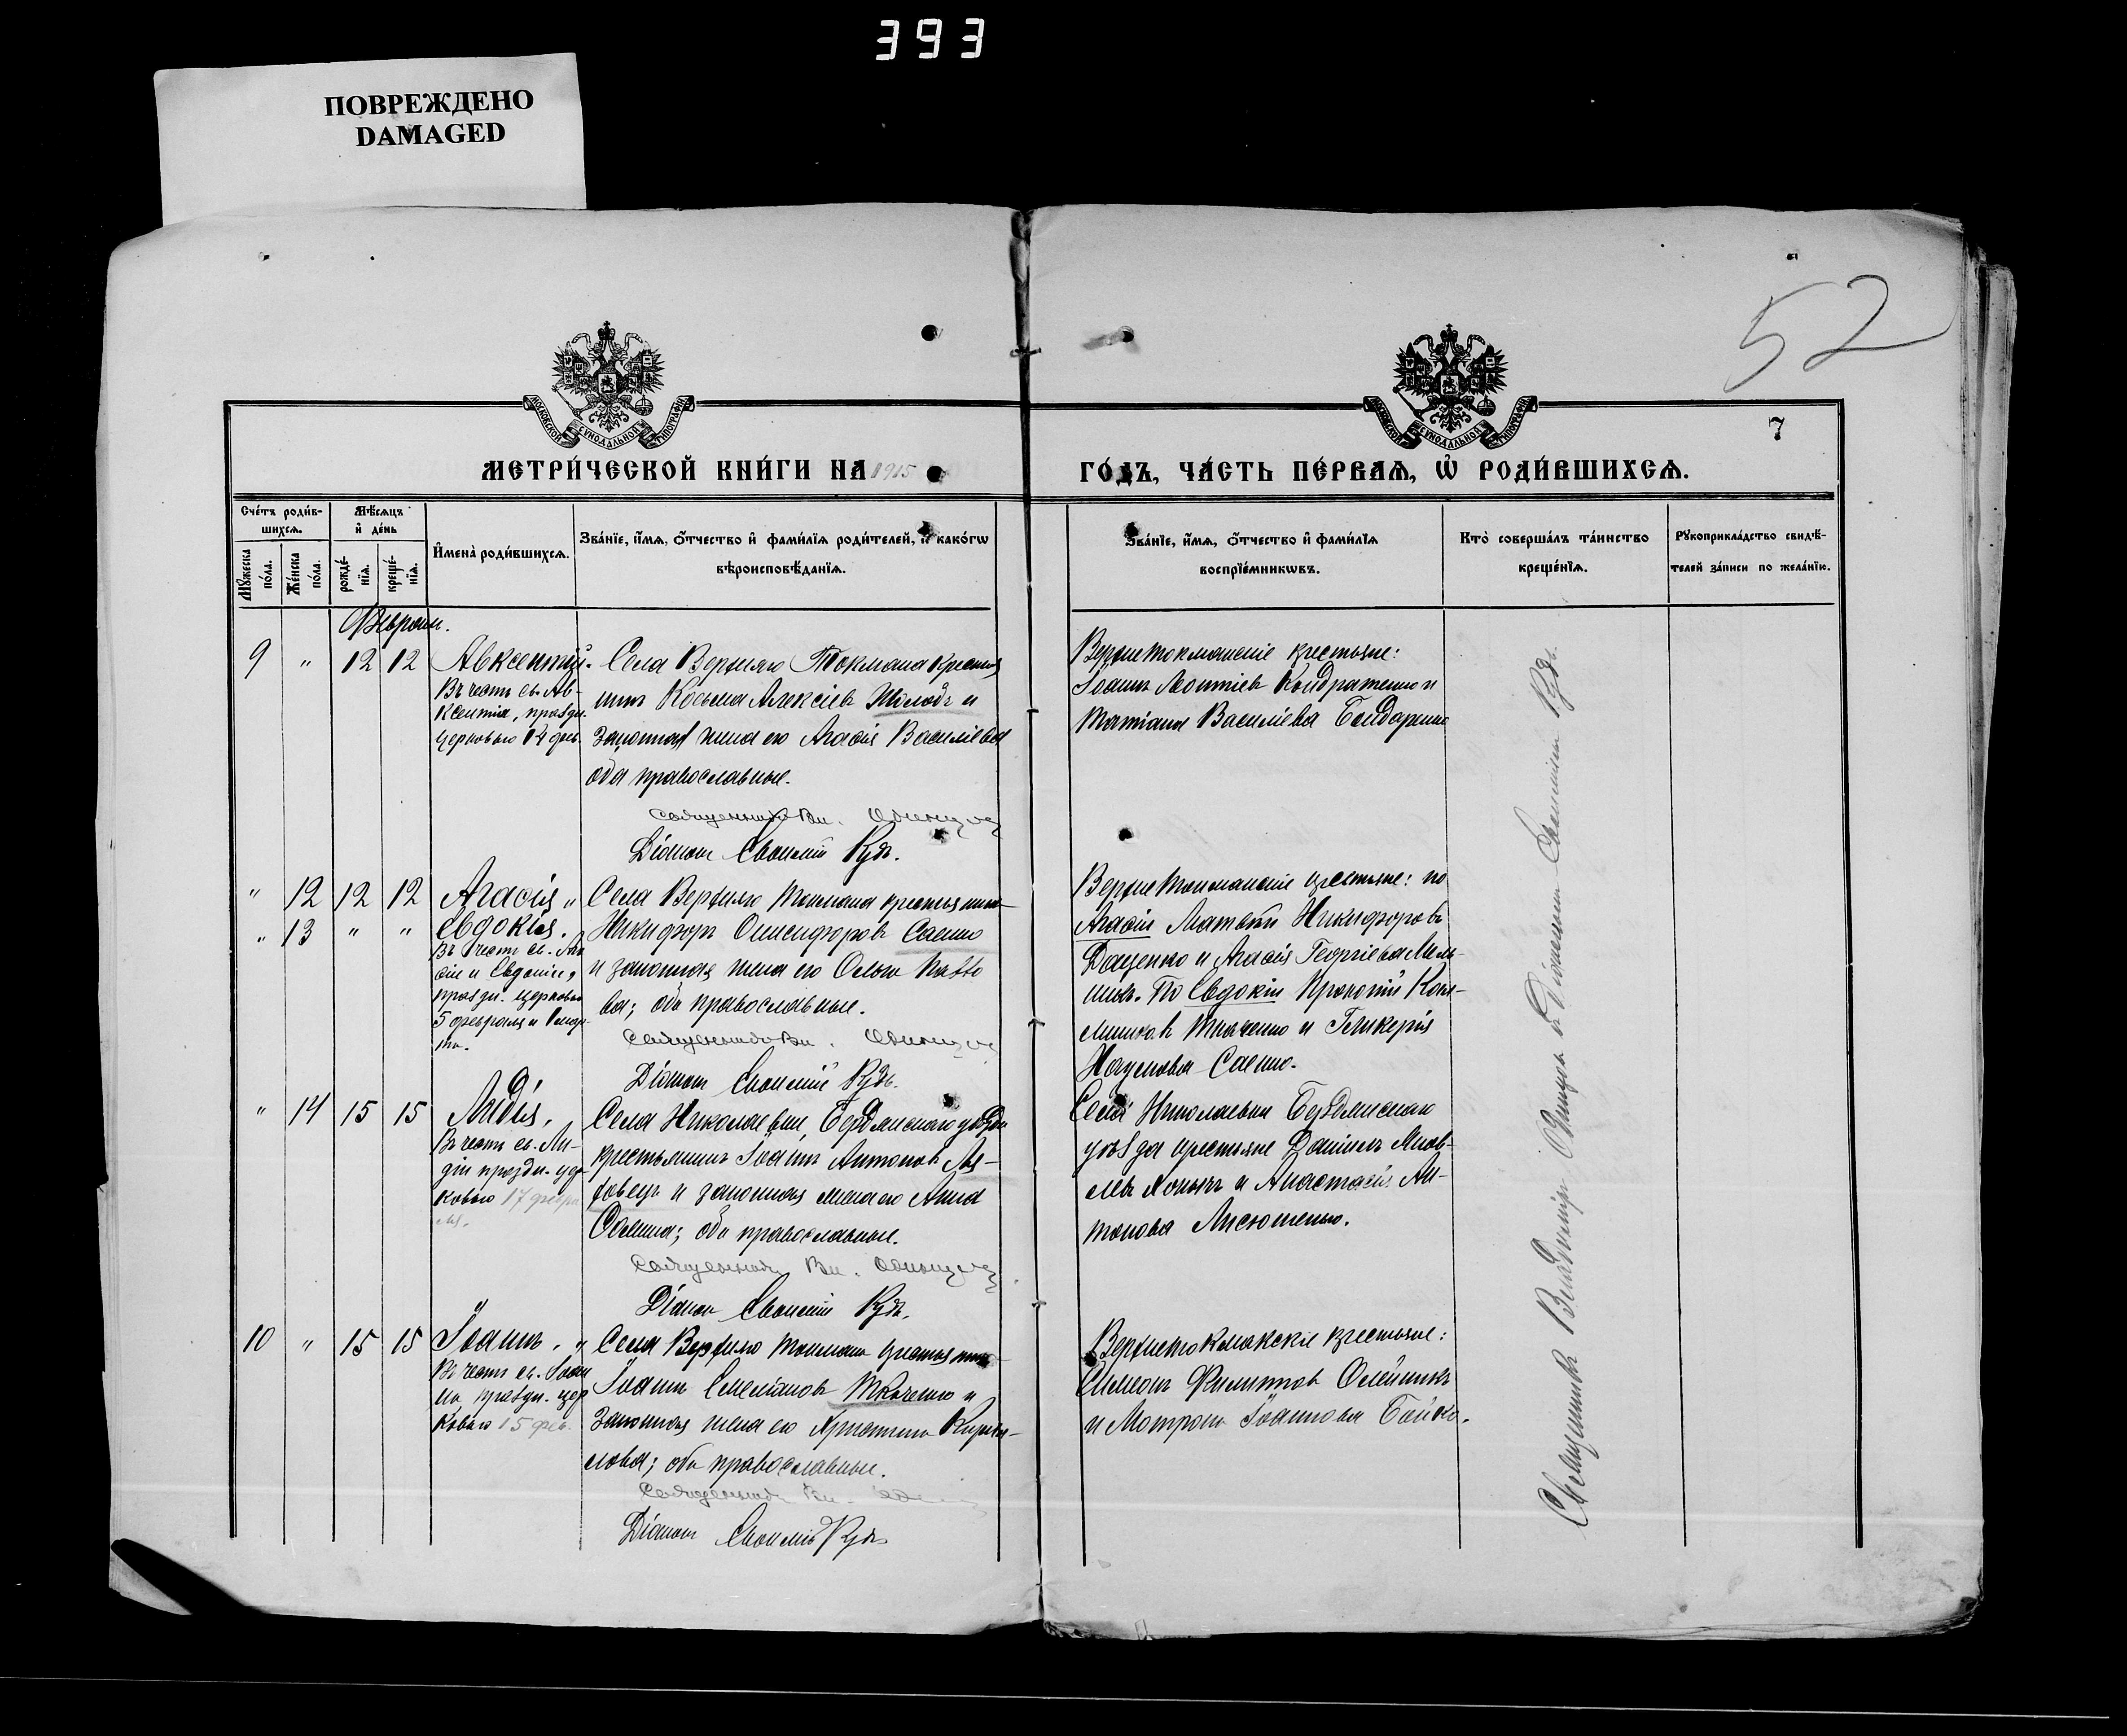 393
ПОВРЕЖДЕНО
DAMAGED
52
7
МОСКОВСКОЙ СѴНОДАЛЬНОЙ ТИПОГРАФІИ
МОСКОВСКОЙ СѴНОДАЛЬНОЙ ТИПОГРАФІИ
МЕТРИ́ЧЕСКОЙ КНИ́ГИ НА 1915
ГО́ДЪ, ЧА́СТЬ ПЕ́РВАЯ, Ѡ҆ РОДИ́ВШИХСЯ.
Сче́тъ роди́в-
шихся.
Мѣ́сяцъ
и҆ де́нь
Мꙋ́жеска
по́ла.
Же́нска
по́ла.
рожде́-
нїя.
креще́-
нїя.
И҆мена̀ роди́вшихся.
Зва́нїе, и҆́мя, ѻ҆́тчество и҆ фами́лїя роди́телей, и҆ како́гѡ
вѣроисповѣ́данїя.
Зва́нїе, и҆́мя, ѻ҆́тчество и҆ фами́лїя
воспрїе́мникѡвъ.
Кто̀ соверша́лъ та́инство
креще́нїя.
Рꙋкоприкла́дство свидѣ́-
телей за́писи по жела́нїю.
Февраль.
9 " 12 12 Авксентій.
Въ честь св. Ав-
ксентія, праздн.
церковью 14 фев.
Села Верхняго Токмака крестья
нинъ Косьма Алексіевъ Шолодъ и
законная жена его Агафія Василіева
оба православные.
Священникъ Вл. Одинцов
Діаконъ Евфимій Кудь.
Верхнетокмакскіе крестьяне:
Іоаннъ Леонтіевъ Кондратенко и
Татіана Василіева Бондаренко
" 12 12 12 Агафія "
" 13 " " Евдокія.
Въ честь св. Ага
фіи и Евдокіи,
праздн. церковью
5 февраля и 1 мар-
та.
Села Верхняго Токмака крестьянинъ
Никифоръ Онисифоровъ Саенко
и законная жена его Ольга
ва; оба православные.
Священникъ Вл. Одинцов
Діаконъ Евфимій Кудь.
Верхнетокмакскіе крестьяне: по
Агафіи Матвѣй Никифоровъ
Даценко и Агафія Георгіева Мель-
никъ. По Евдокіи Прокопій
Ткаченко и Гликерія
Наумова Саенко.
" 14 15 15 Лидія.
Въ честь св. Ли-
діи праздн. цер-
ковью 17 февра
ля.
Села Николаевки, Бердянскаго уѣзда
крестьянинъ Іоаннъ Антоновъ Ля-
ховецъ и законная жена его Анна
Ѳомина; оба православные.
Священникъ Вл. Одинцов
Діаконъ Евфимій Кудь.
Села Николаевки Бердянскаго
уѣзда крестьяне Даніилъ Яков-
левъ и Анастасія Ан-
тонова
10 " 15 15 Іоаннъ. "
Въ честь св. Іоан
на праздн. цер
ковью 15 фев.
Села Верхняго Токмака крестьянинъ
Іоаннъ Емеліановъ Ткаченко и
законная жена его Христина Кирил-
лова; оба православные.
Священникъ Вл.
Діаконъ Евфимій Кудь
Верхнетокмакскіе крестьяне:
Симеонъ Филипповъ Олейникъ
и Мотрона Іоаннова Бойко.
Священникъ Владиміръ Одинцовъ съ Діакономъ Евфиміемъ Кудь.